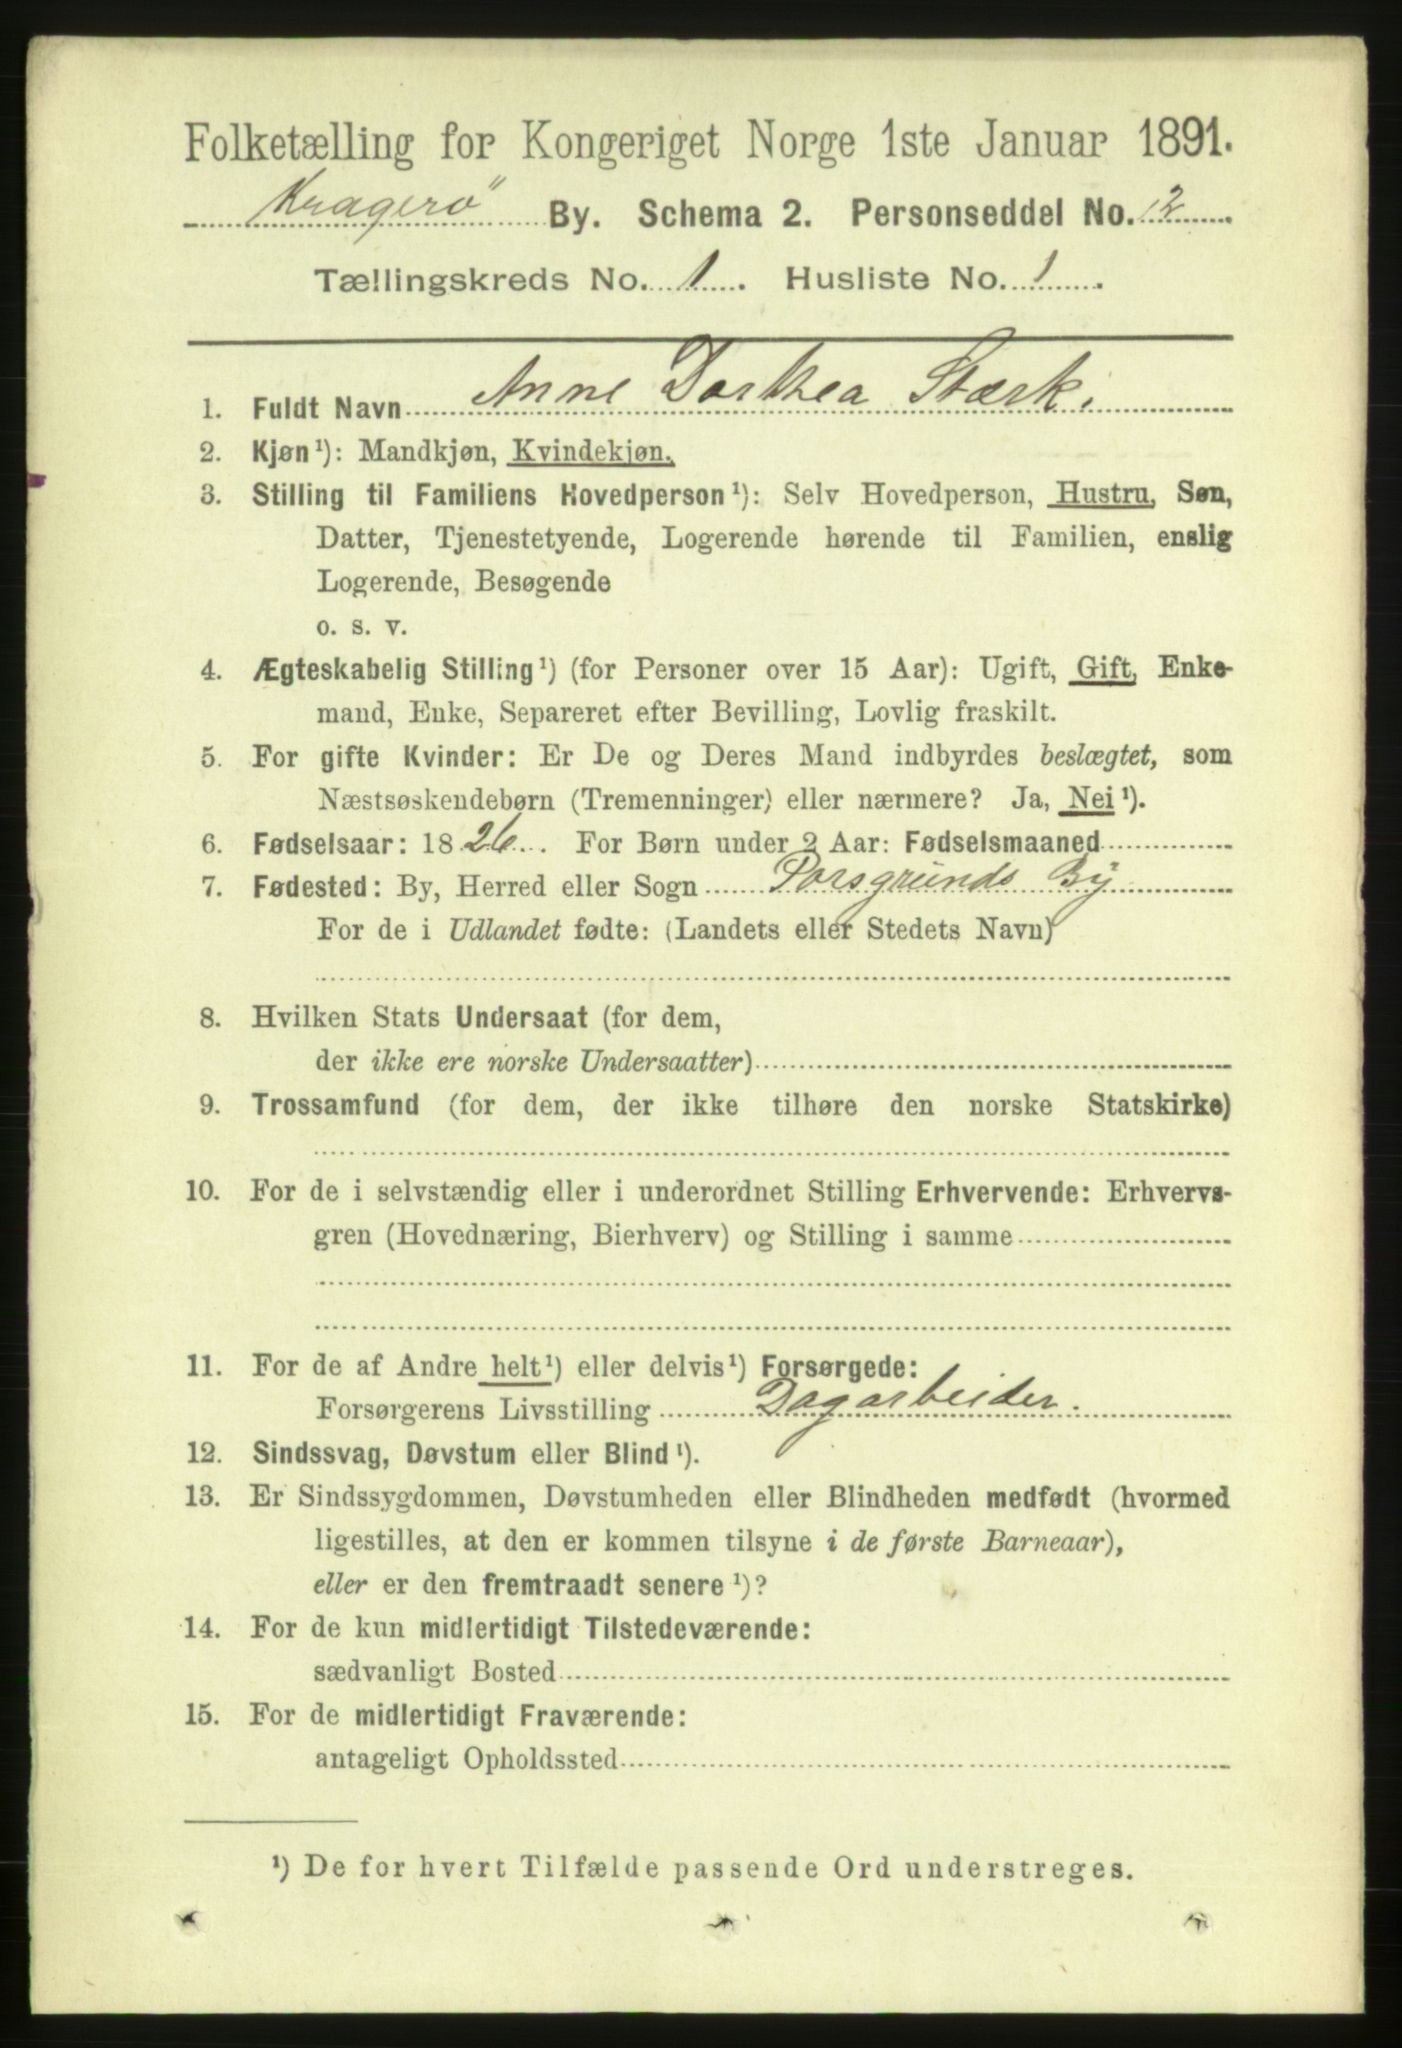 Folketælling for Kongeriget Norge 1ste Januar 1891.
Kragerö By. Schema 2. Personseddel No. 12
Tællingskreds No. 1. Husliste No. 1.
1. Fuldt Navn Anne Dorthea Stærk.
2. Kjøn¹): Mandkjøn, Kvindekjøn.
3. Stilling til Familiens Hovedperson¹): Selv Hovedperson, Hustru, Søn,
Datter, Tjenestetyende, Logerende hørende til Familien, enslig
Logerende, Besøgende
o. s. v.
4. Ægteskabelig Stilling¹) (for Personer over 15 Aar): Ugift, Gift, Enke-
mand, Enke, Separeret efter Bevilling, Lovlig fraskilt.
5. For gifte Kvinder: Er De og Deres Mand indbyrdes beslægtet, som
Næstsøskendebørn (Tremenninger) eller nærmere? Ja, Nei¹).
6. Fødselsaar: 1826. For Børn under 2 Aar: Fødselsmaaned
7. Fødested: By, Herred eller Sogn Porsgrunds By
For de i Udlandet fødte: (Landets eller Stedets Navn)
8. Hvilken Stats Undersaat (for dem,
der ikke ere norske Undersaatter)
9. Trossamfund (for dem, der ikke tilhøre den norske Statskirke)
10. For de i selvstændig eller i underordnet Stilling Erhvervende: Erhvervs-
gren (Hovednæring, Bierhverv) og Stilling i samme
11. For de af Andre helt¹) eller delvis¹) Forsørgede:
Forsørgerens Livsstilling Dagarbeider.
12. Sindssvag, Døvstum eller Blind¹).
13. Er Sindssygdommen, Døvstumheden eller Blindheden medfødt (hvormed
ligestilles, at den er kommen tilsyne i de første Barneaar),
eller er den fremtraadt senere¹)?
14. For de kun midlertidigt Tilstedeværende:
sædvanligt Bosted
15. For de midlertidigt Fraværende:
antageligt Opholdssted
¹) De for hvert Tilfælde passende Ord understreges.